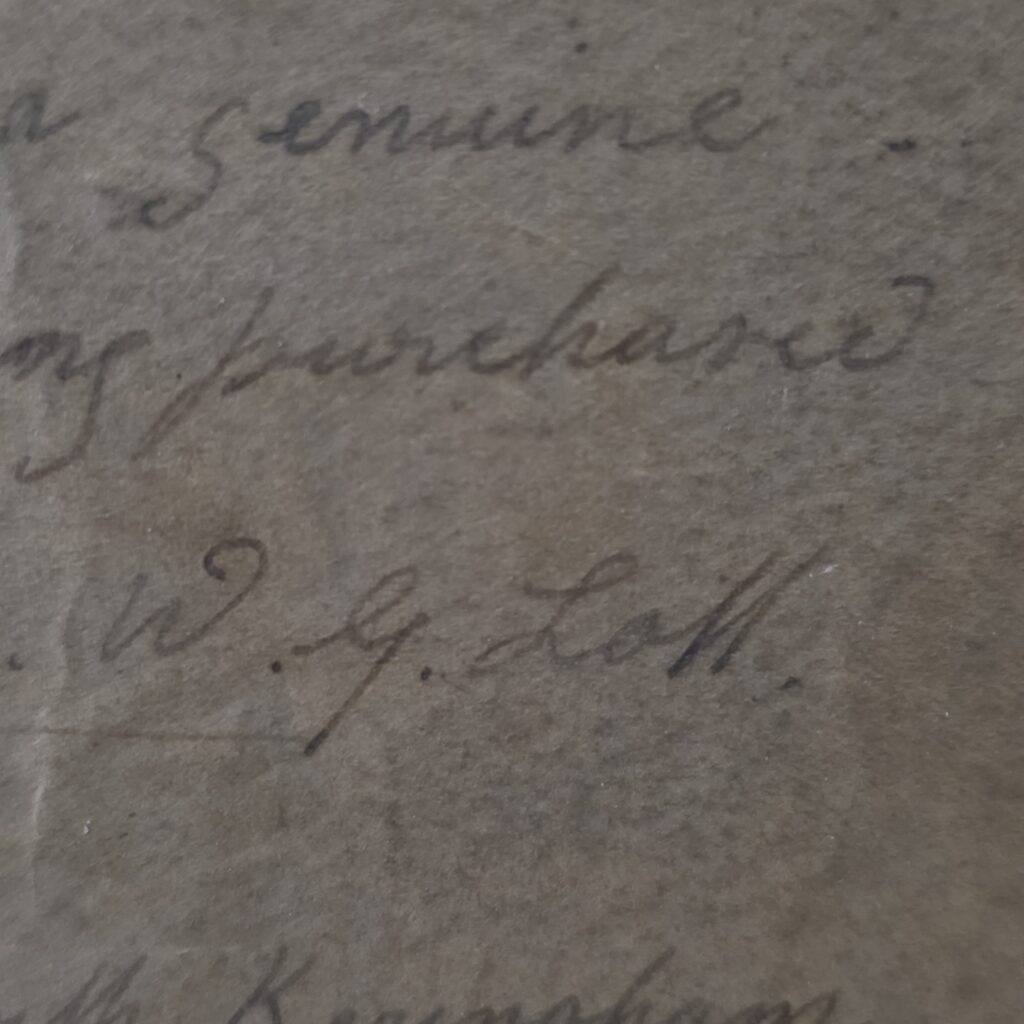 a genuine
ng purchased
. W. G. Lott.